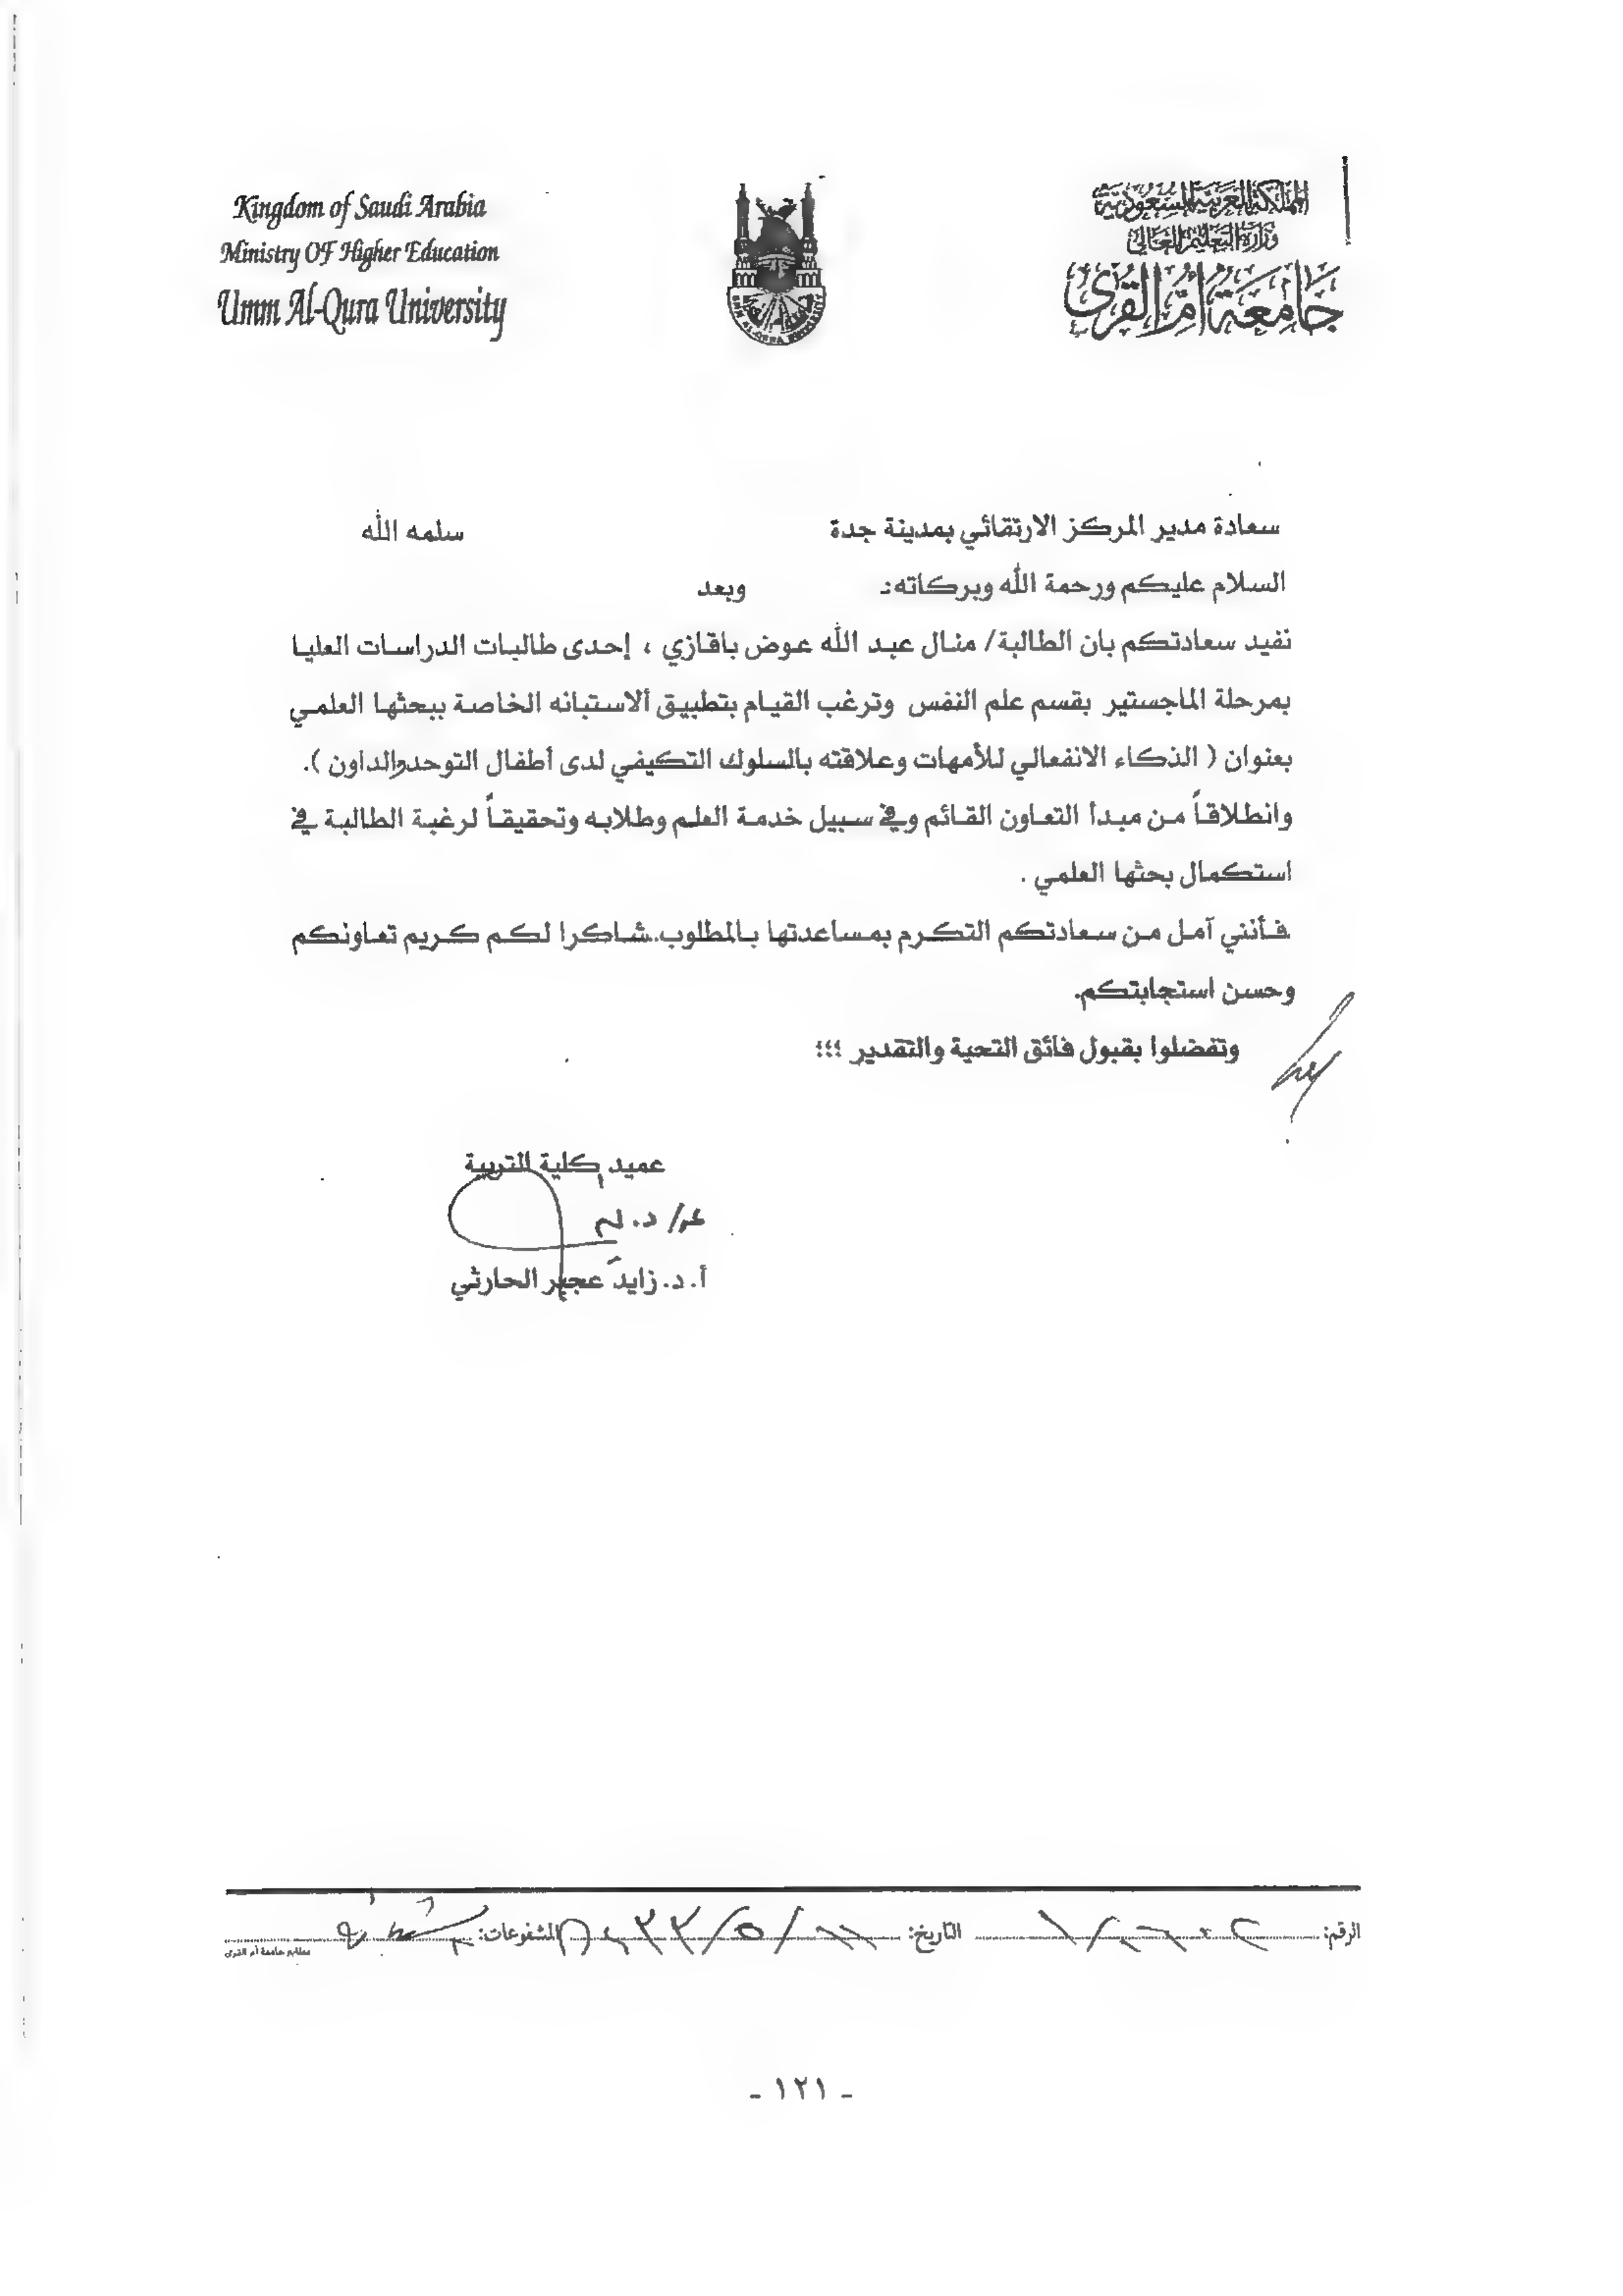 Kingdom of Saudi Arabia
Ministry OF Higher Education
Umm Al-Qura University
المملكة العربية السعودية
وزارة التعليم العالي
جامعة أم القرى
سعادة مدير المركز الارتقائي بمدينة جدة سلمه الله
السلام عليكم ورحمة الله وبركاته:ـ وبعد
نفيد سعادتكم بان الطالبة/ منال عبد الله عوض باقازي ، إحدى طالبات الدراسات العليا
بمرحلة الماجستير بقسم علم النفس وترغب القيام بتطبيق ألاستبانه الخاصة ببحثها العلمي
بعنوان ( الذكاء الانفعالي للأمهات وعلاقته بالسلوك التكيفي لدى أطفال التوحد والداون ).
وانطلاقاً من مبدأ التعاون القائم وفي سبيل خدمة العلم وطلابه وتحقيقاً لرغبة الطالبة في
استكمال بحثها العلمي .
فأنني آمل من سعادتكم التكرم بمساعدتها بالمطلوب.شاكرا لكم كريم تعاونكم
وحسن استجابتكم.
وتفضلوا بقبول فائق التحية والتقدير ؛؛؛
عميد كلية التربية
أ. د. زايد عجير الحارثي
الرقم: التاريخ: المشفوعات:
مطابع جامعة أم القرى
- ١٢١ -